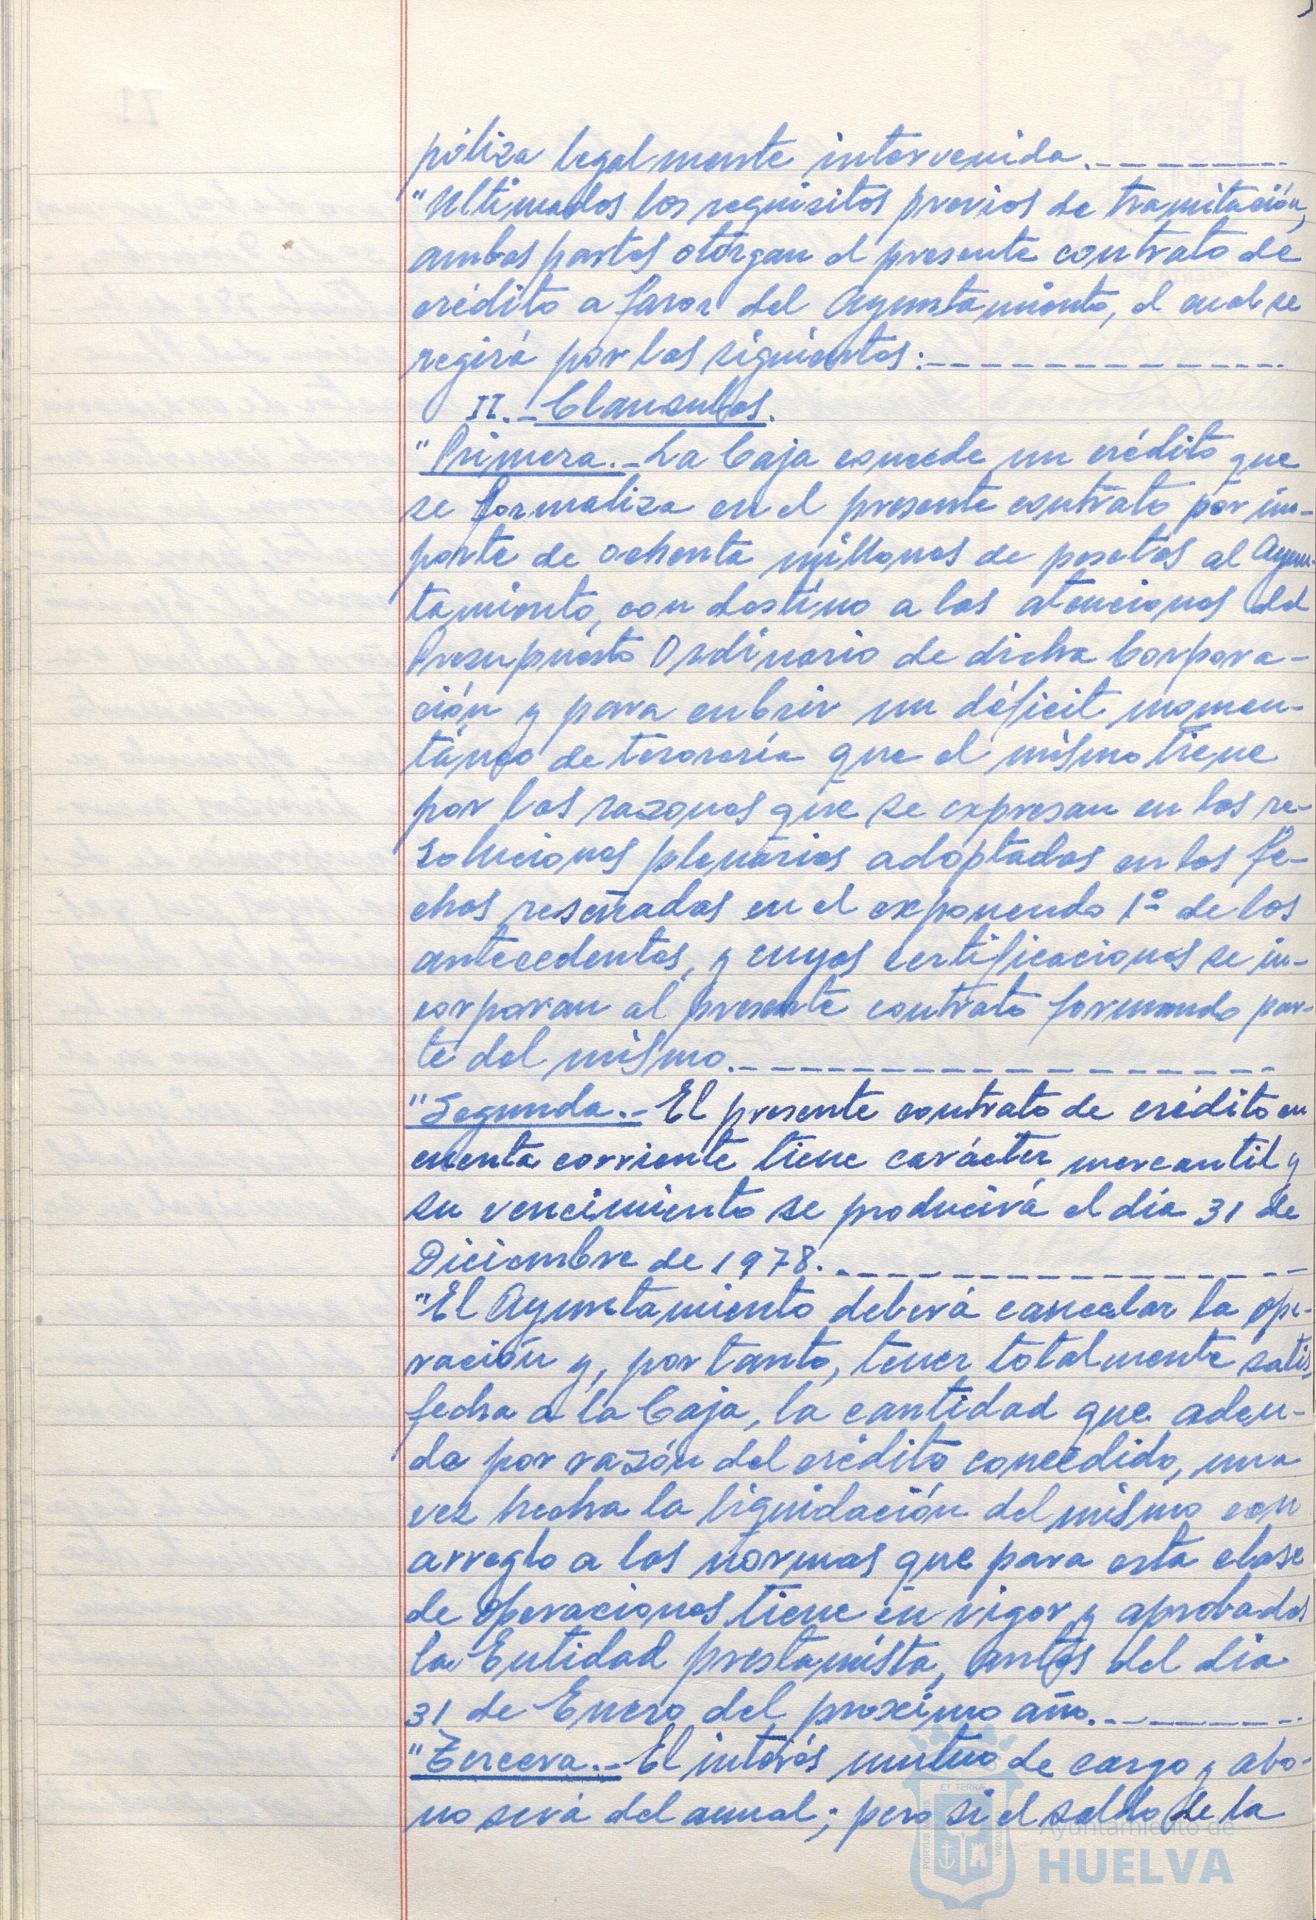 póliza legalmente intervenida.
"Ultimados los requisitos previos de tramitación,
ambas partes otorgan el presente contrato de
crédito a favor del Ayuntamiento, el cual se
regirá por las siguientes:
II.- Clausulas.
"Primera.- La Caja concede un crédito que
se formaliza en el presente contrato por im-
porte de ochenta millones de pesetas al Ayun-
tamiento, con destino a las atenciones del
Presupuesto Ordinario de dicha Corpora-
ción y para cubrir un déficit momen-
táneo de tesorería que el mismo tiene
por las razones que se expresan en las re-
soluciones plenarias adoptadas en las fe-
chas reseñadas en el exponendo 1º de los
antecedentes, y cuyas certificaciones se in-
corporan al presente contrato formando par-
te del mismo.
"Segunda.- El presente contrato de crédito en
cuenta corriente tiene carácter mercantil y
su vencimiento se producirá el día 31 de
Diciembre de 1978.
"El Ayuntamiento deberá cancelar la ope-
ración y, por tanto, tener totalmente satis
fecha a la Caja, la cantidad que adeu-
da por razón del crédito concedido, una
vez hecha la liquidación del mismo con
arreglo a las normas que para esta clase
de operaciones tiene en vigor y aprobadas
la Entidad prestamista, antes del dia
31 de Enero del proximo año.
"Tercera.- El interés mutuo de cargo y abo-
no será del anual; pero si el saldo de la
Ayuntamiento de
HUELVA